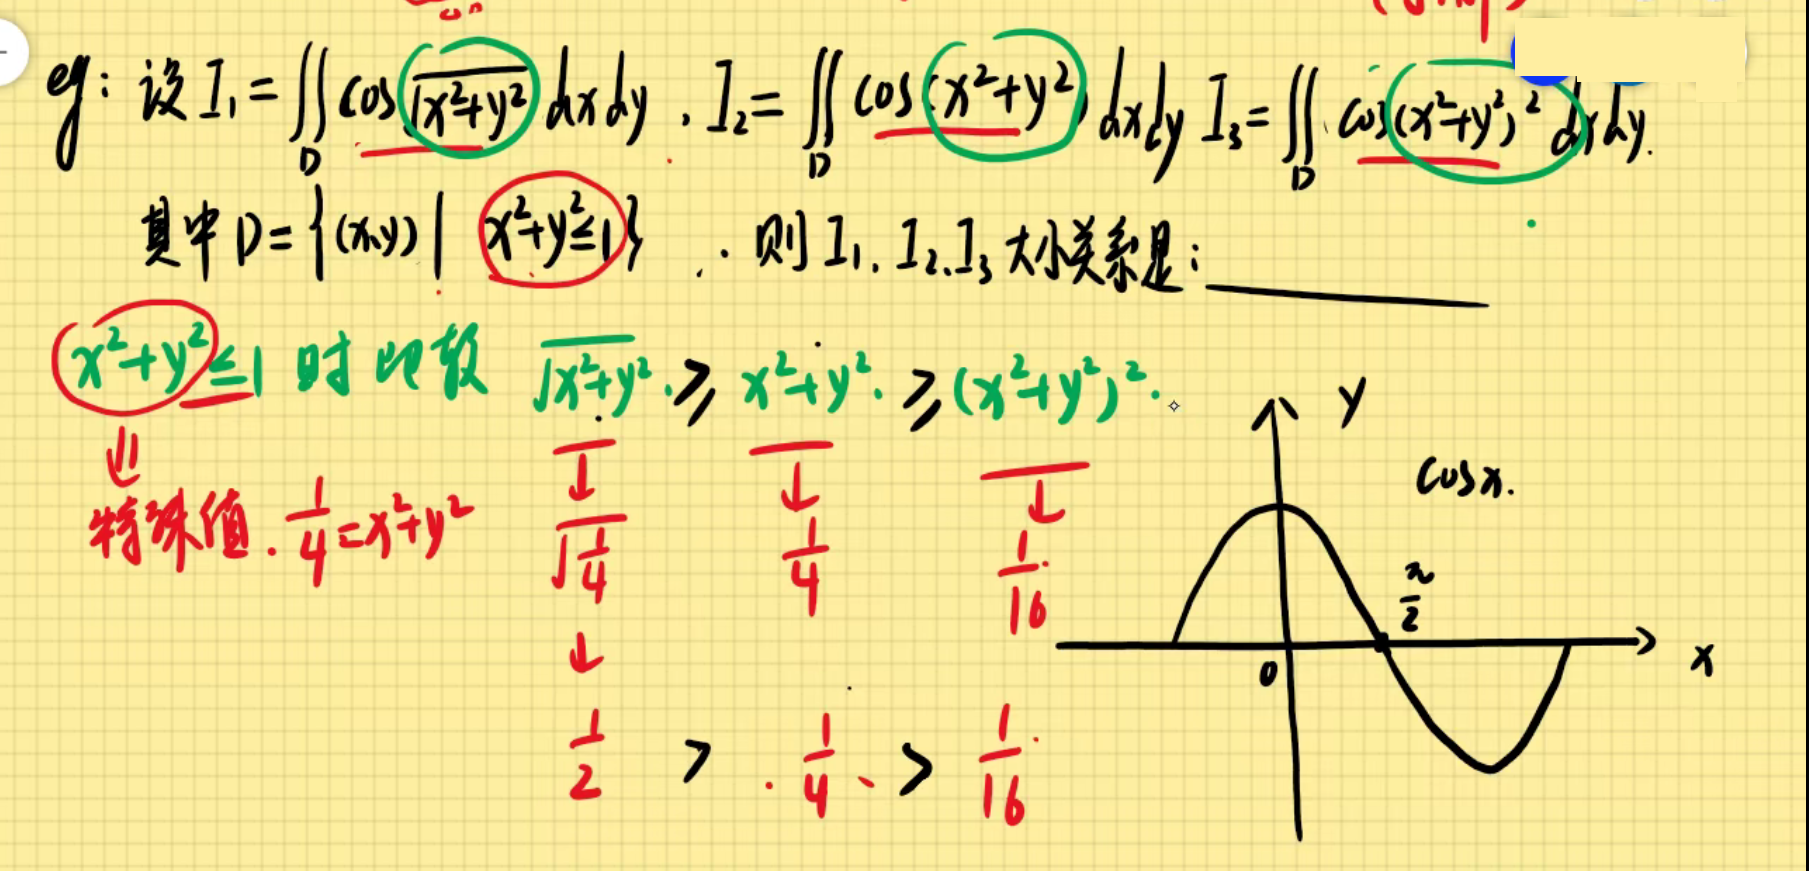 eg: 设 I₁ = ∬_D cos√(x²+y²) dxdy . I₂ = ∬_D cos(x²+y²) dxdy I₃ = ∬_D cos(x²+y²)² dxdy.
其中 D = {(x,y) | x²+y² ≤ 1} . 则 I₁. I₂、I₃ 大小关系是:
x²+y² ≤ 1 时 比较 √(x²+y²) ≥ x²+y² ≥ (x²+y²)²
特殊值. 1/4 = x²+y²
√(1/4) 1/4 1/16
1/2 > 1/4 > 1/16
y
cosx.
π/2
0
x